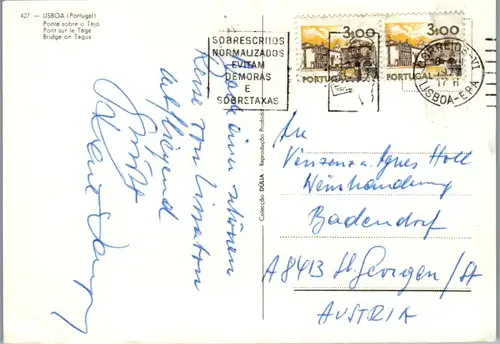 427 - LISBOA (Portugal)
Ponte sobre o Tejo
Pont sur le Tage
Bridge on Tagus
SOBRESCRITOS
NORMALIZADOS
EVITAM
DEMORAS
E
SOBRETAXAS
3$00
PORTUGAL
3$00
PORTUGAL
CORREIOS-VI
1977
17 H
LISBOA-EPA
Colecção DÚLIA - Reproducção Proibida
einer schönen
Reise von Lissabon
Grüßt
An
Vinzenz u. Agnes Holl
Weinhandlung
Badendorf
A8413 St. Georgen/St
AUSTRIA